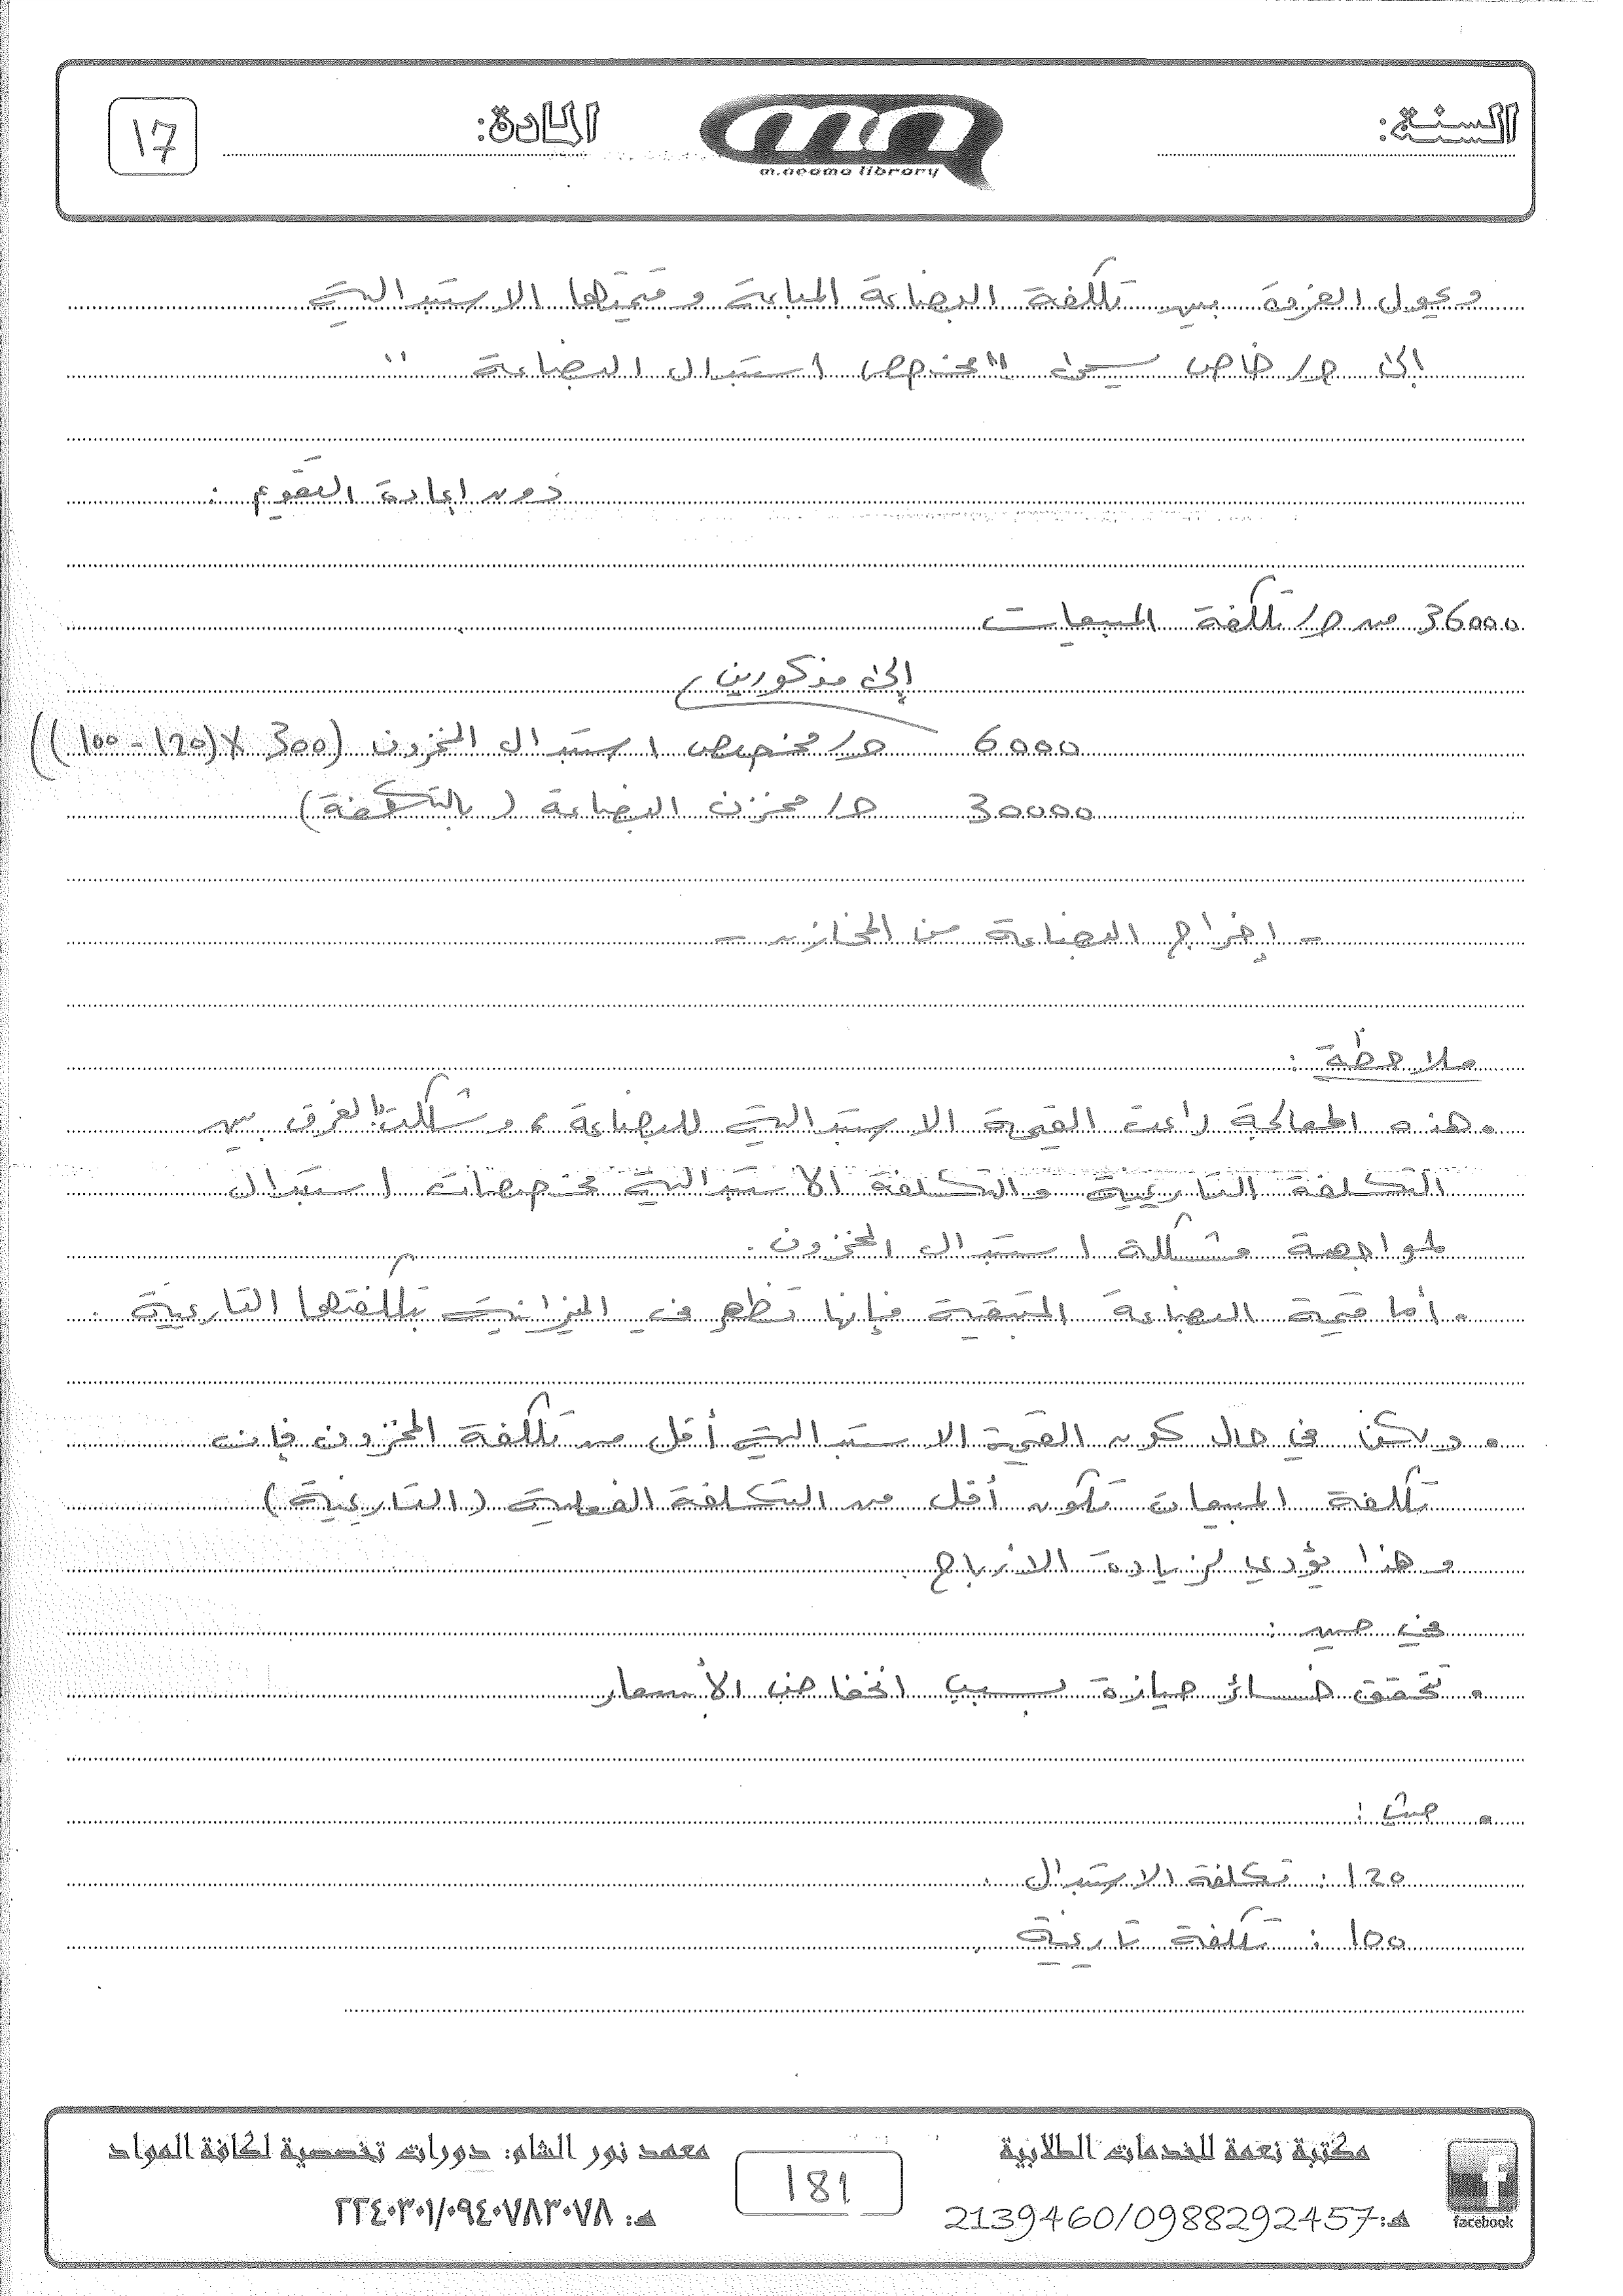 السنة:
m.neama library
المادة:
17
ويحول الفرق بين تكلفة البضاعة المباعة وقيمتها الاستبدالية
إلى ح/ خاص يسمى "مخصص استبدال البضاعة"
دون إعادة التقويم :
36000 من ح/ تكلفة المبيعات
إلى مذكورين
6000 ح/ مخصص استبدال المخزون (300 × (120 - 100))
30000 ح/ مخزن البضاعة (بالتكلفة)
- إخراج البضاعة من المخازن -
ملاحظة :
• هذه المعالجة راعت القيمة الاستبدالية للبضاعة ، وشكلت بالفرق بين
التكلفة التاريخية والتكلفة الاستبدالية مخصصات استبدال
لمواجهة مشكلة استبدال المخزون .
• أما قيمة البضاعة المتبقية فإنها تظهر في الميزانية بتكلفتها التاريخية .
• ولكن في حال كون القيمة الاستبدالية أقل من تكلفة المخزون فإن
تكلفة المبيعات تكون أقل من التكلفة الفعلية (التاريخية)
وهذا يؤدي لزيادة الأرباح .
في حين :
• تتحقق خسائر حيازة بسبب انخفاض الأسعار
• حيث :
120 : تكلفة الاستبدال .
100 : تكلفة تاريخية .
facebook
مكتبة نعمة للخدمات الطلابية
هـ:2139460/0988292457
181
معهد نور الشام: دورات تخصصية لكافة المواد
هـ: ٢٢٤٠٣٠١/٠٩٤٠٧٨٣٠٧٨